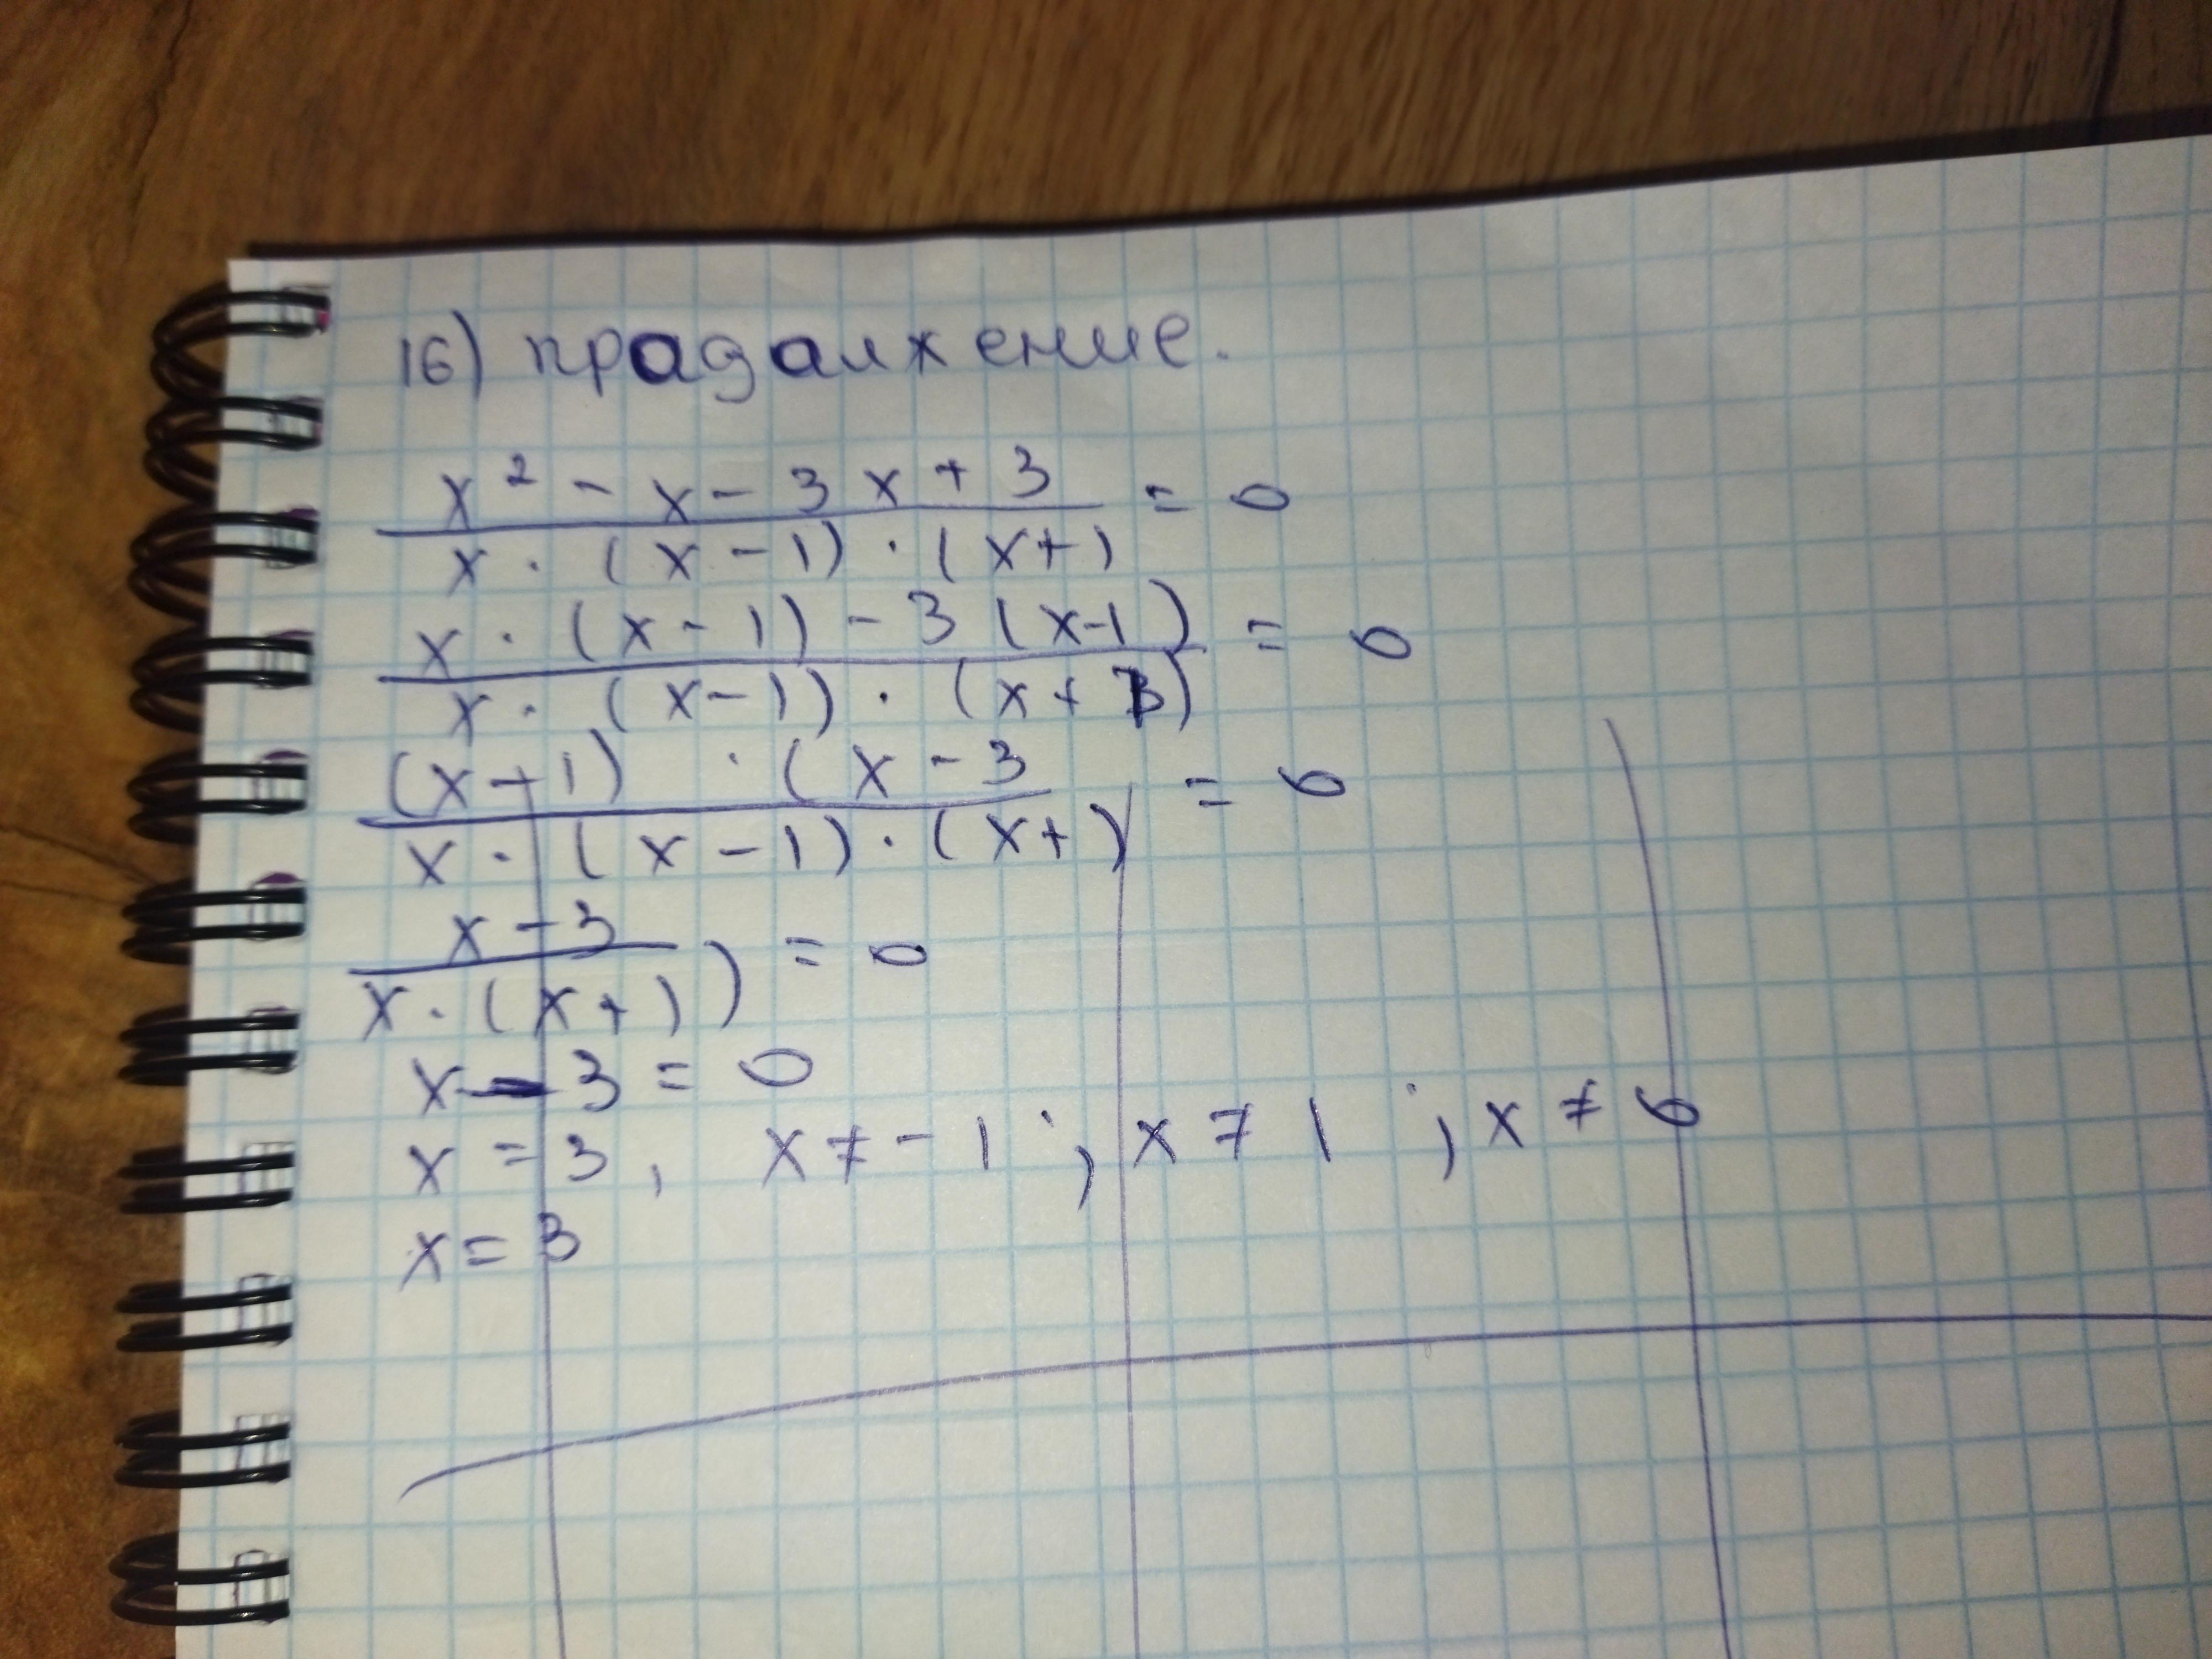 16) прадалжение.
x² - x - 3x + 3 = 0
x · (x - 1) · (x + )
x · (x - 1) - 3 (x - 1) = 0
x · (x - 1) · (x + 1)
(x - 1) · (x - 3 = 0
x · (x - 1) · (x + )
x - 3 = 0
x · (x + 1)
x - 3 = 0
x = 3, x ≠ - 1 ; x ≠ 1 ; x ≠ 0
x = 3